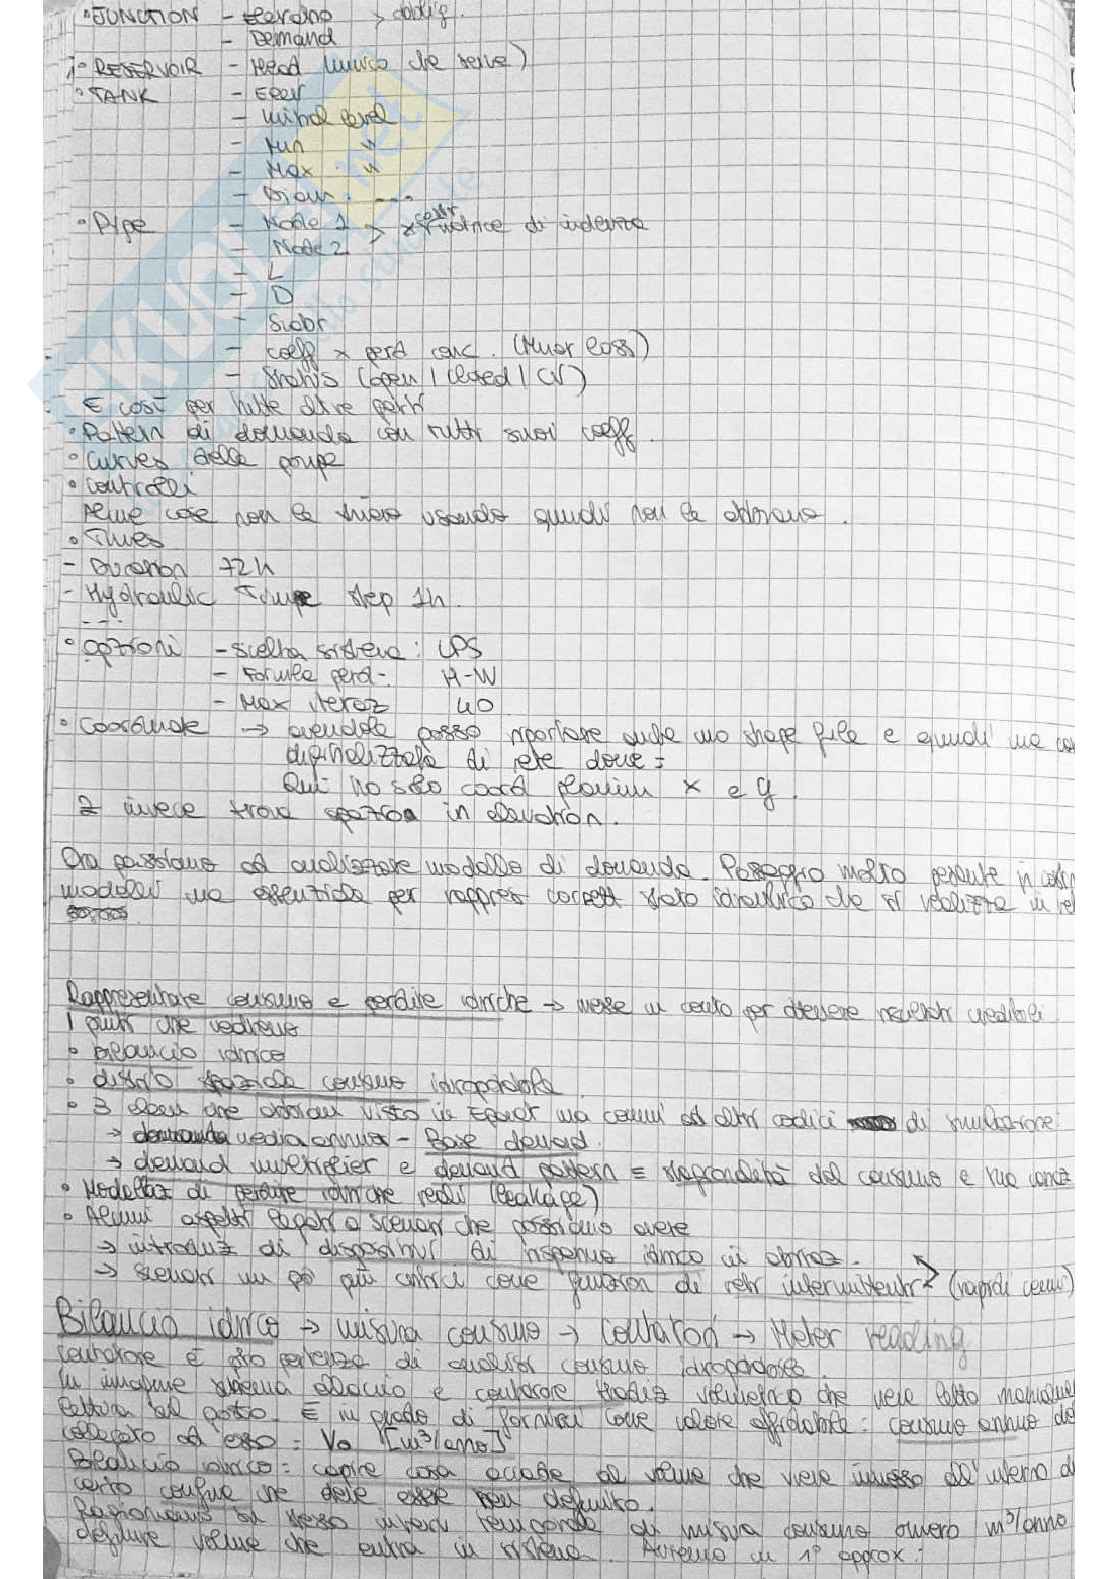 • JUNCTION - elevaro > obblig.
- Demand
• RESERVOIR - Head (unico che serve)
• TANK - Elev
- Initial level
- Min "
- Max "
- Diam. ....
• Pipe - Node 1 > x costr matrice di incidenza
- Node 2
- L
- D
- Scabr
- coeff x perd conc. (Minor loss)
- Status (open | closed | CV)
E così per tutte altre parti
• Pattern di domanda con tutti suoi coeff.
• Curves delle pompe
• controlli
Alcune cose non le stiamo usando quindi non le abbiamo.
• Times
- Duration 72h
- Hydraulic Time step 1h.
- - -
• opzioni - scelta sistema: LPS
- Formula perd-: H-W
- Max iteraz 40
• Coordinate → avendole posso riportare anche uno shape file e quindi una
digitalizzata di rete dove =
Qui ho solo coord planim x e y.
z invece trova spazio in elevation.
Ora passiamo ad analizzare modello di domanda. Passaggio molto pesante in
modellaz ma essenziale per rappres corrett stato idraulico che si realizza in
Rappresentare consumo e perdite idriche → messe in conto per ottenere risultati credibili
I punti che vedremo
• Bilancio idrico
• distrib spaziale consumo idropotabile
• 3 elem che abbiam visto in Epanet ma comuni ad altri codici di simulazione:
→ domanda media annua - Base demand.
→ demand multiplier e demand pattern = stagionalità del consumo e sua
• Modellaz di perdite idriche reali (leakage)
• Alcuni aspetti legati a scenari che possiamo avere
→ introduz di dispositivi di risparmio idrico in abitaz.
→ scenari un pò più critici come funzion di reti intermittenti > (rapidi cenni)
Bilancio idrico → misura consumo → contatori → Meter reading
contatore è giò partenza di analisi consumo idropotabile.
In immagine schema allaccio e contatore tradiz volumetrico che viene letto manualm
lettura sul posto. È in grado di fornirci come valore affidabile: consumo annuo
collegato ad esso = Va [m³/anno]
Bilancio idrico = capire cosa accade al volume che viene immesso all'interno di
certo confine che deve esse ben definito.
Ragioniamo su stesso interv temporale di misura consumo ovvero m³/anno
definire volume che entra in sistema. Avremo in 1° approx: